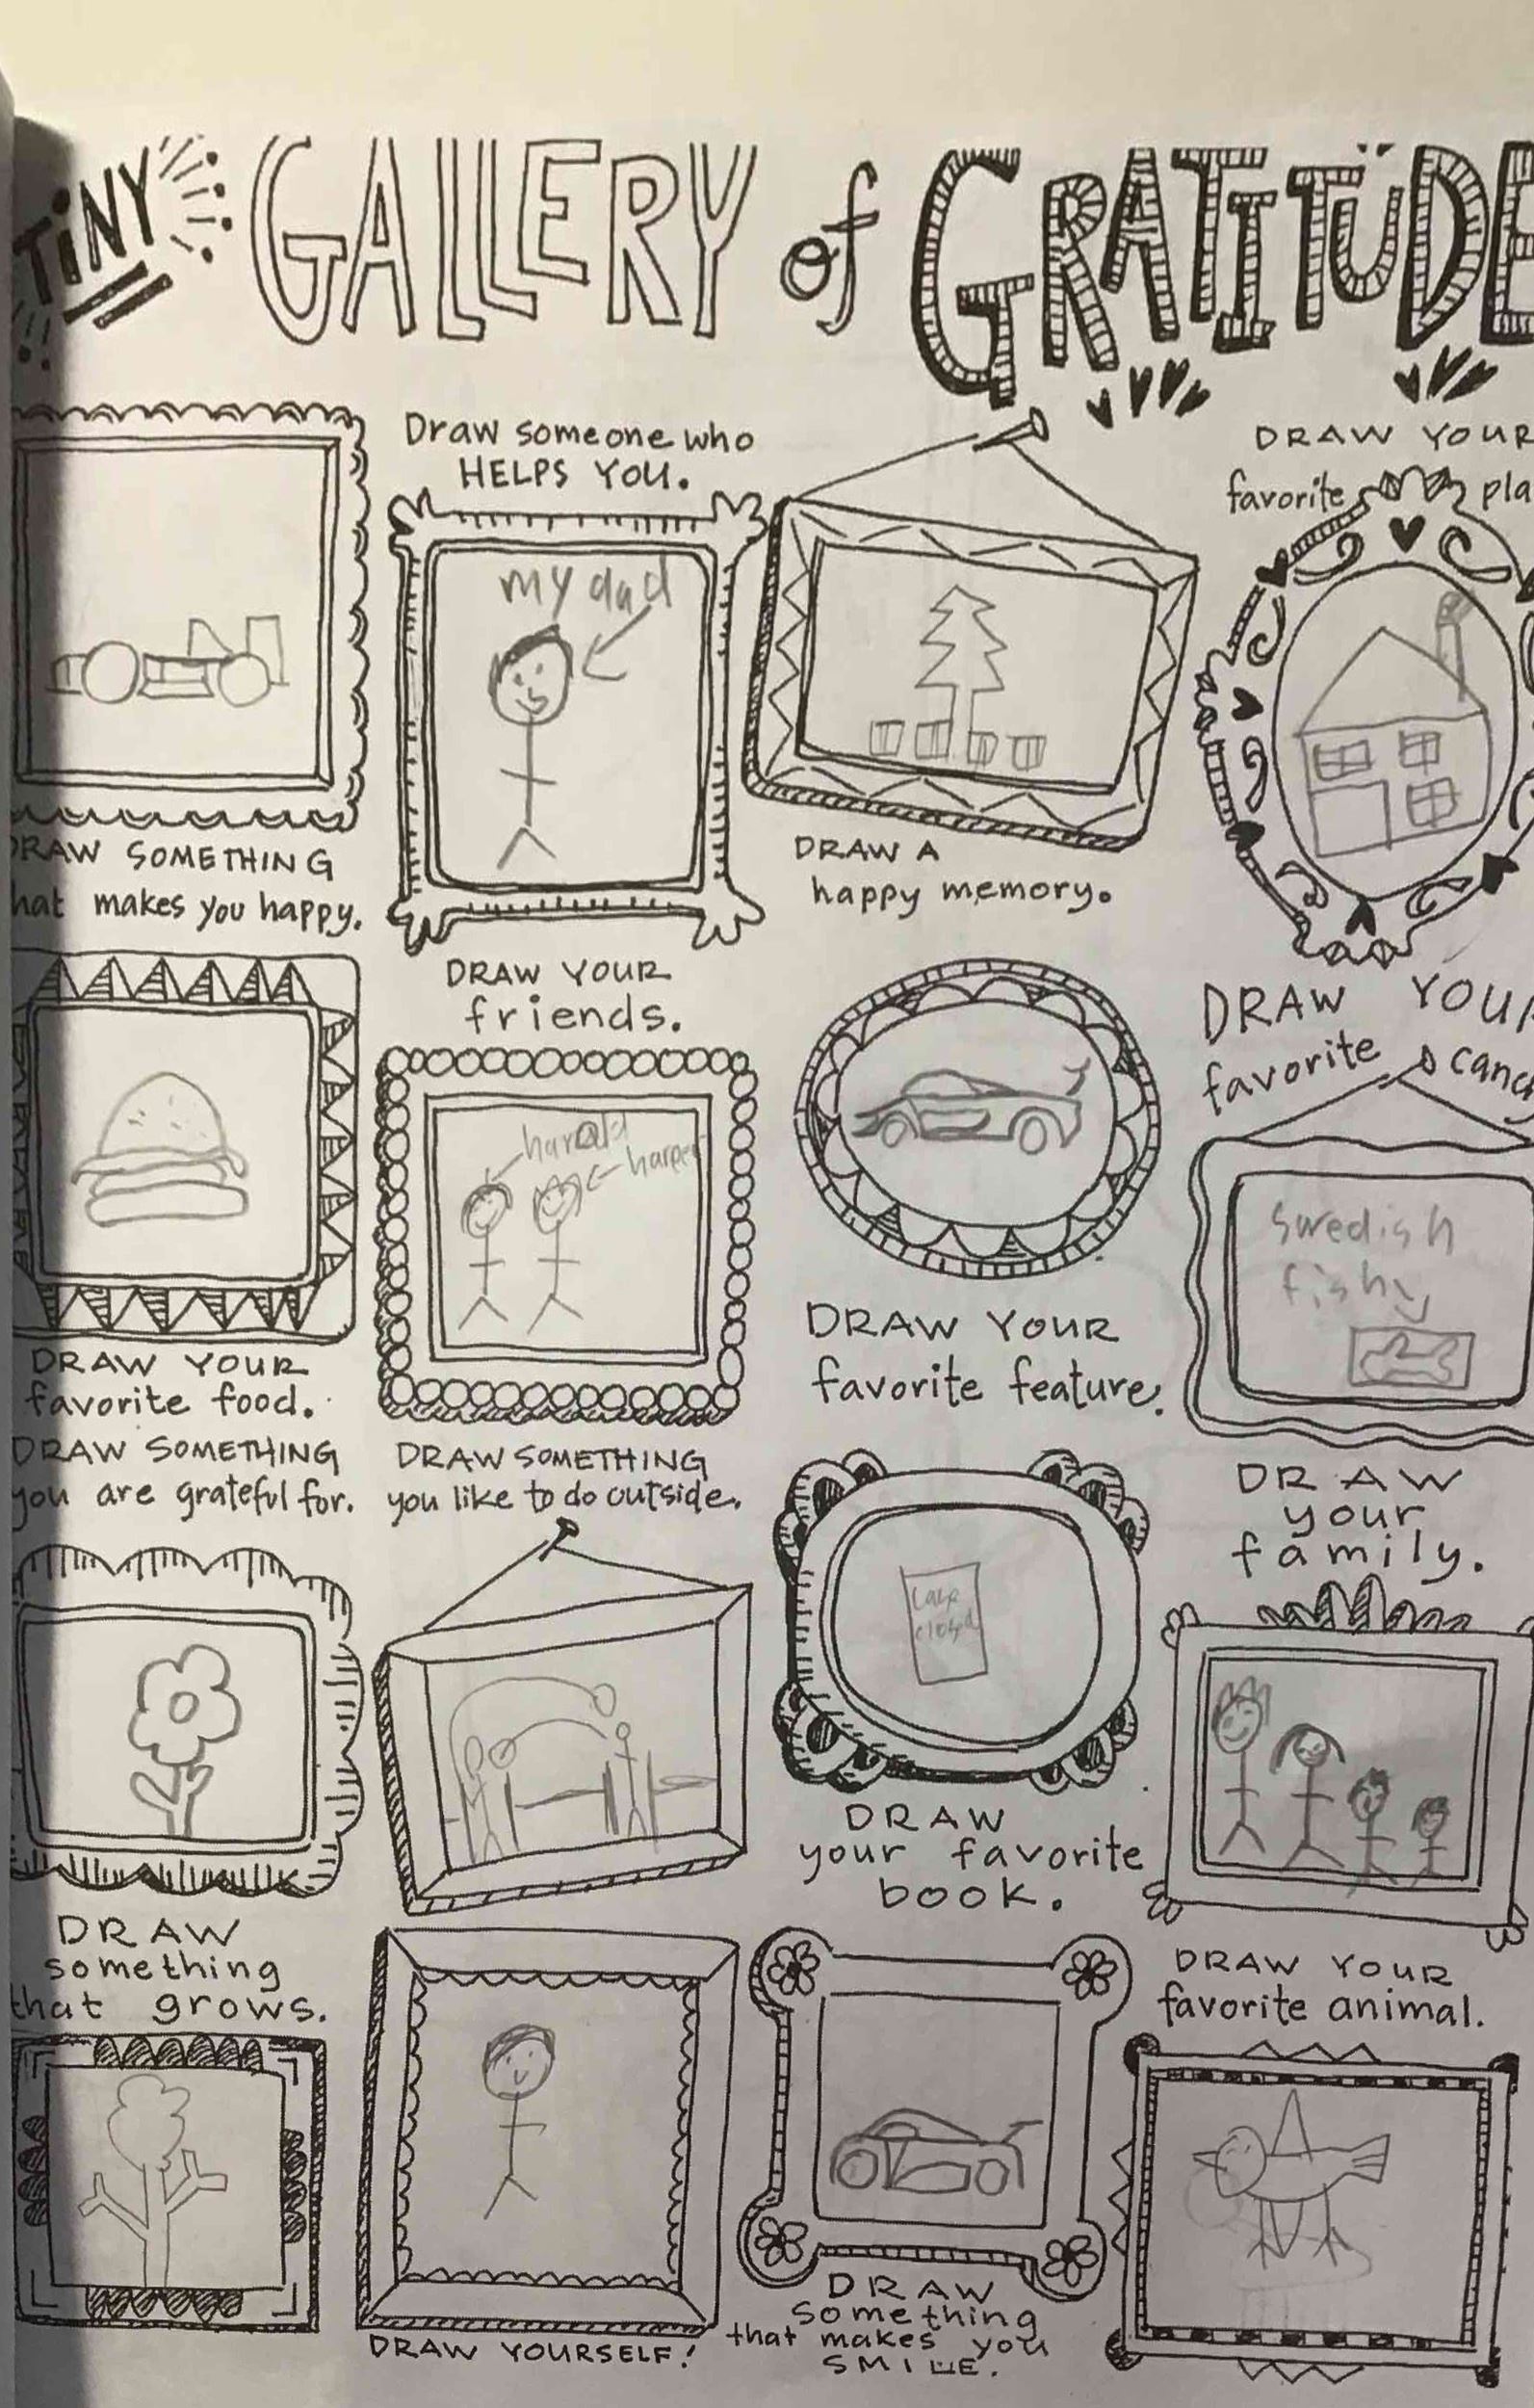 TINY GALLERY of GRATITUDE
Draw someone who
HELPS YOU.
DRAW YOUR
favorite pla
my dad
DRAW SOMETHING
hat makes you happy.
DRAW A
happy memory.
DRAW YOUR
friends.
harald
harper
DRAW YOUR
favorite food.
DRAW YOUR
favorite feature.
DRAW YOUR
favorite cand
Swedish
fishy
DRAW SOMETHING
you are grateful for.
DRAW SOMETHING
you like to do outside.
DRAW
your favorite
book.
closed
DRAW
your
family.
DRAW
something
that grows.
DRAW YOURSELF!
DRAW
something
that makes you
SMILE.
DRAW YOUR
favorite animal.